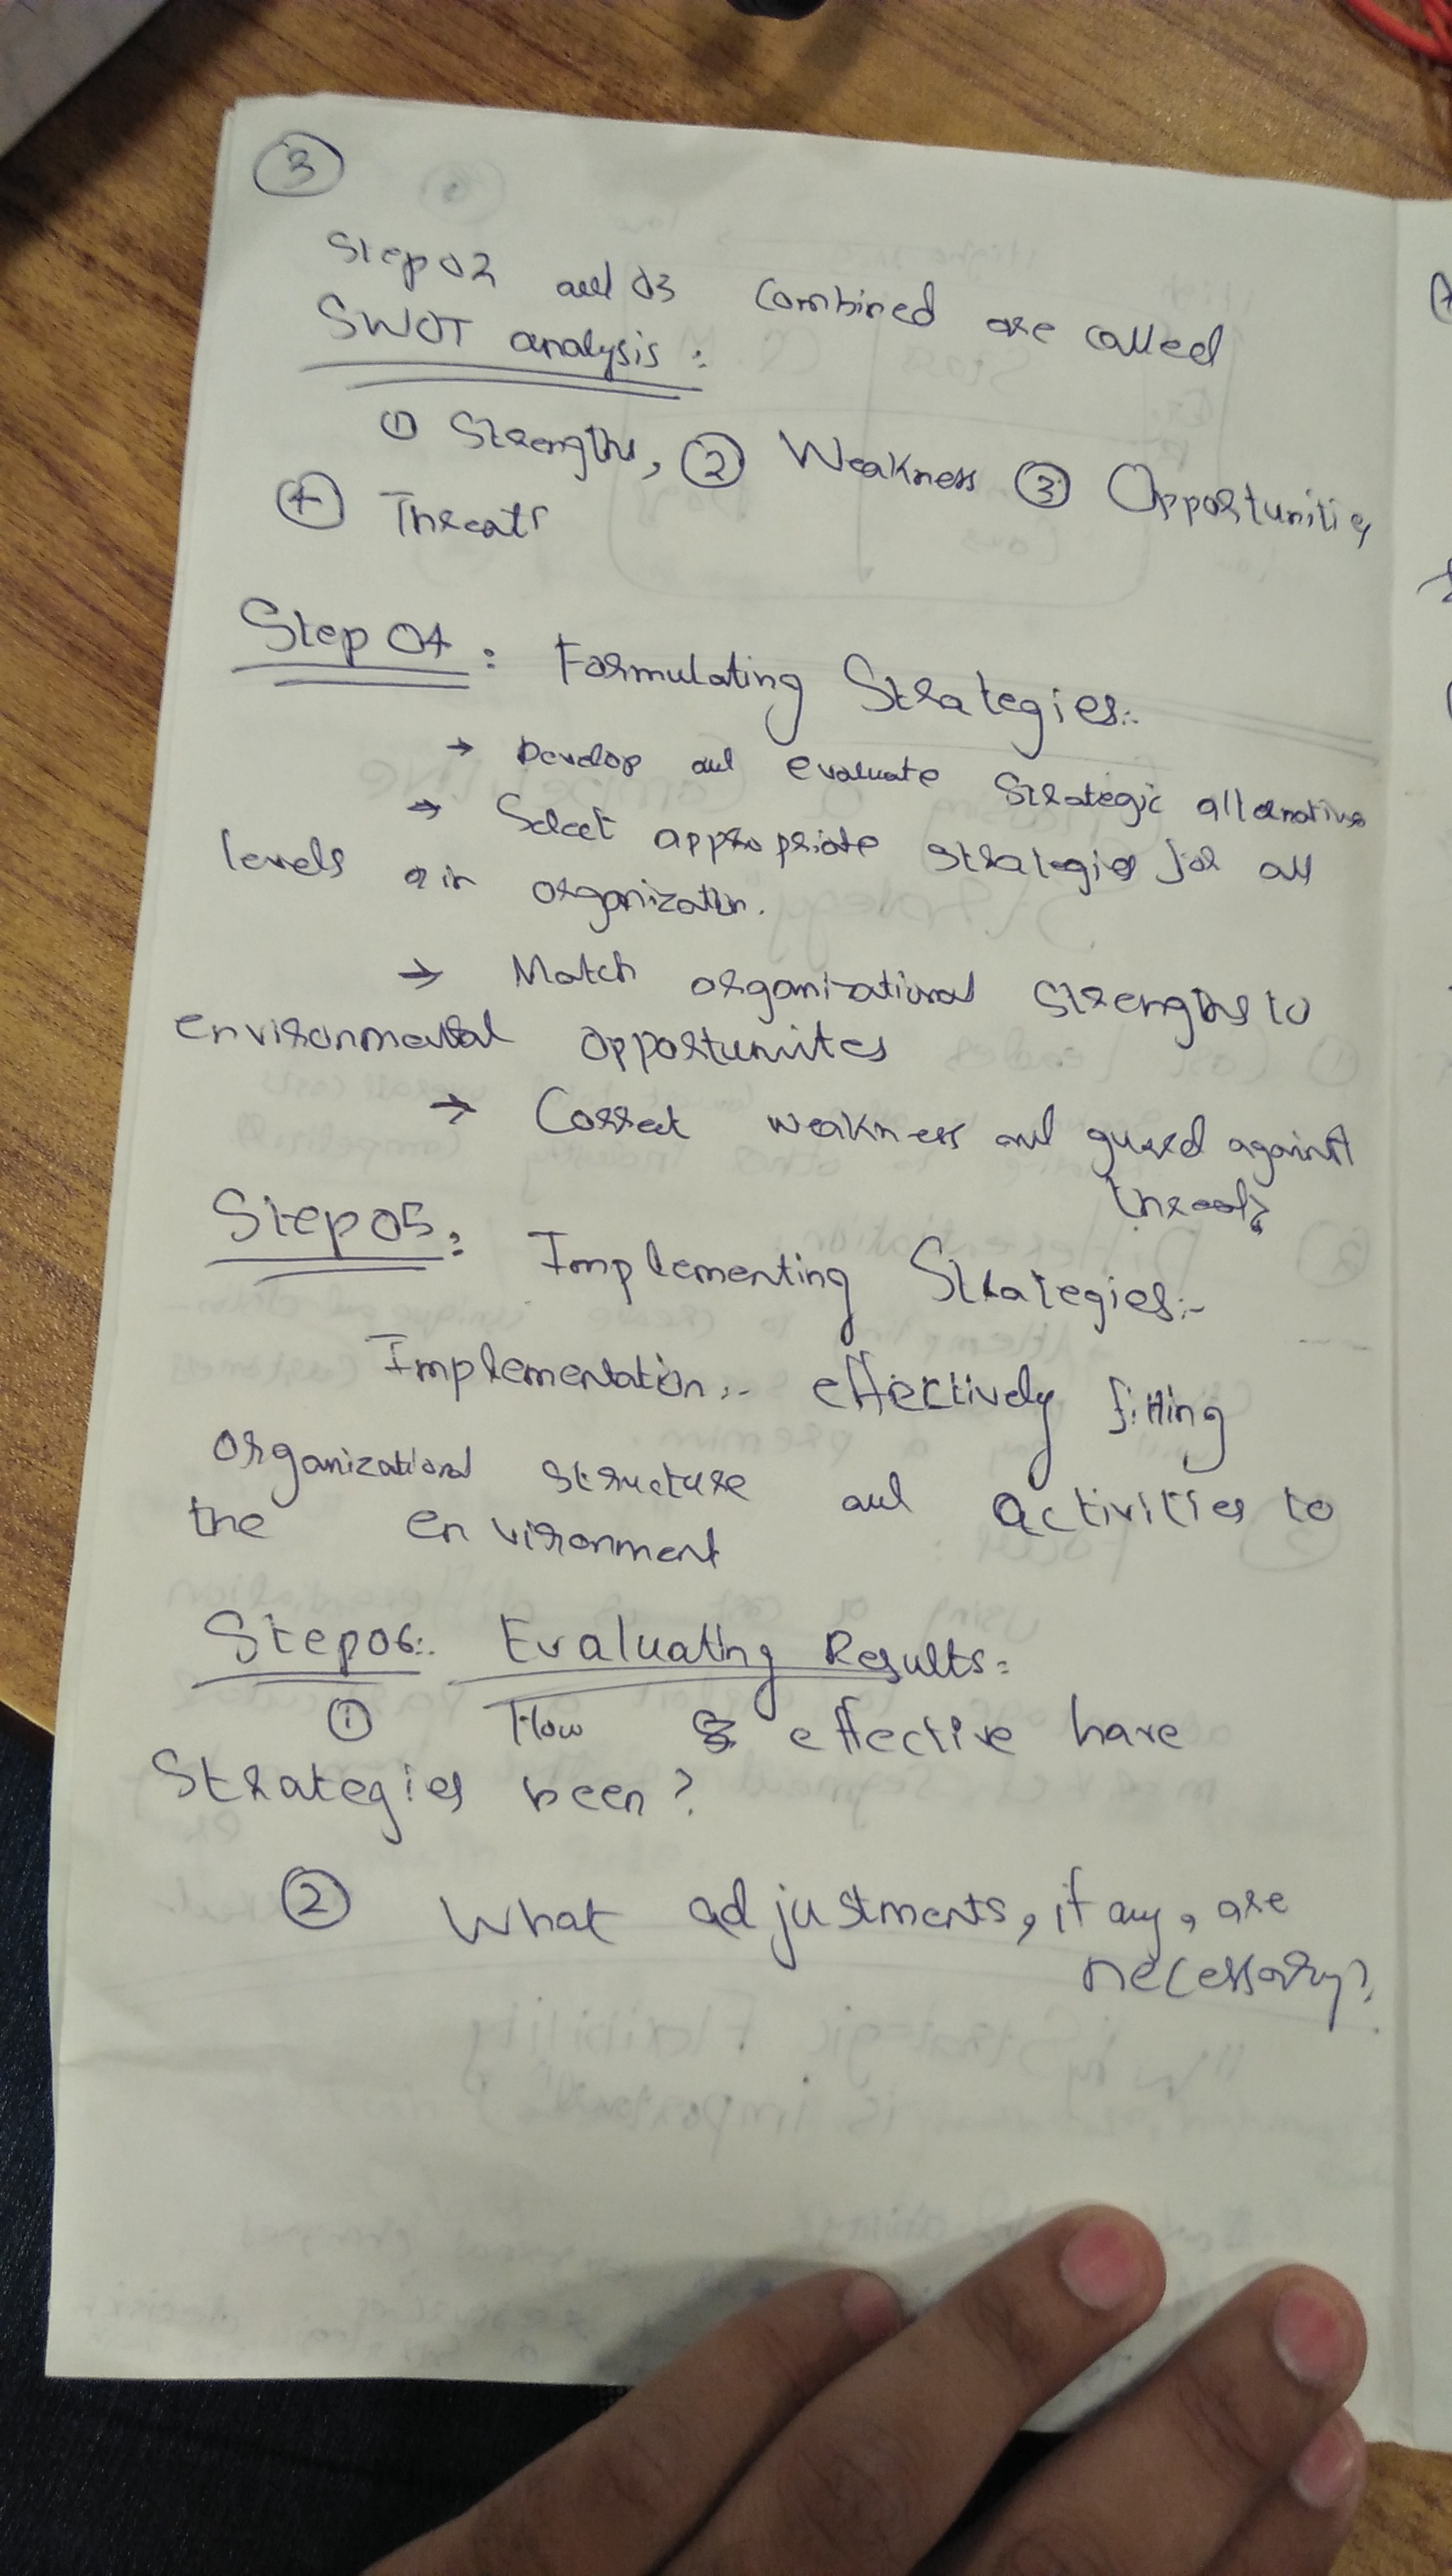 3
Step 02 and 03 combined are called
SWOT analysis :
① Strengths, ② Weakness ③ Opportunities
④ Threats
Step 04 : Formulating Strategies:-
→ Develop and evaluate strategic alternatives
→ Select appropriate strategies for all
levels in organization.
→ Match organizational strengths to
environmental opportunites
→ Correct weakness and guard against
threats
Step 05 : Implementing Strategies:-
Implementation :- effectively fitting
organizational structure and activities to
the environment
Step 06:- Evaluating Results:
① How effective have
strategies been?
② What adjustments, if any, are
necessary?